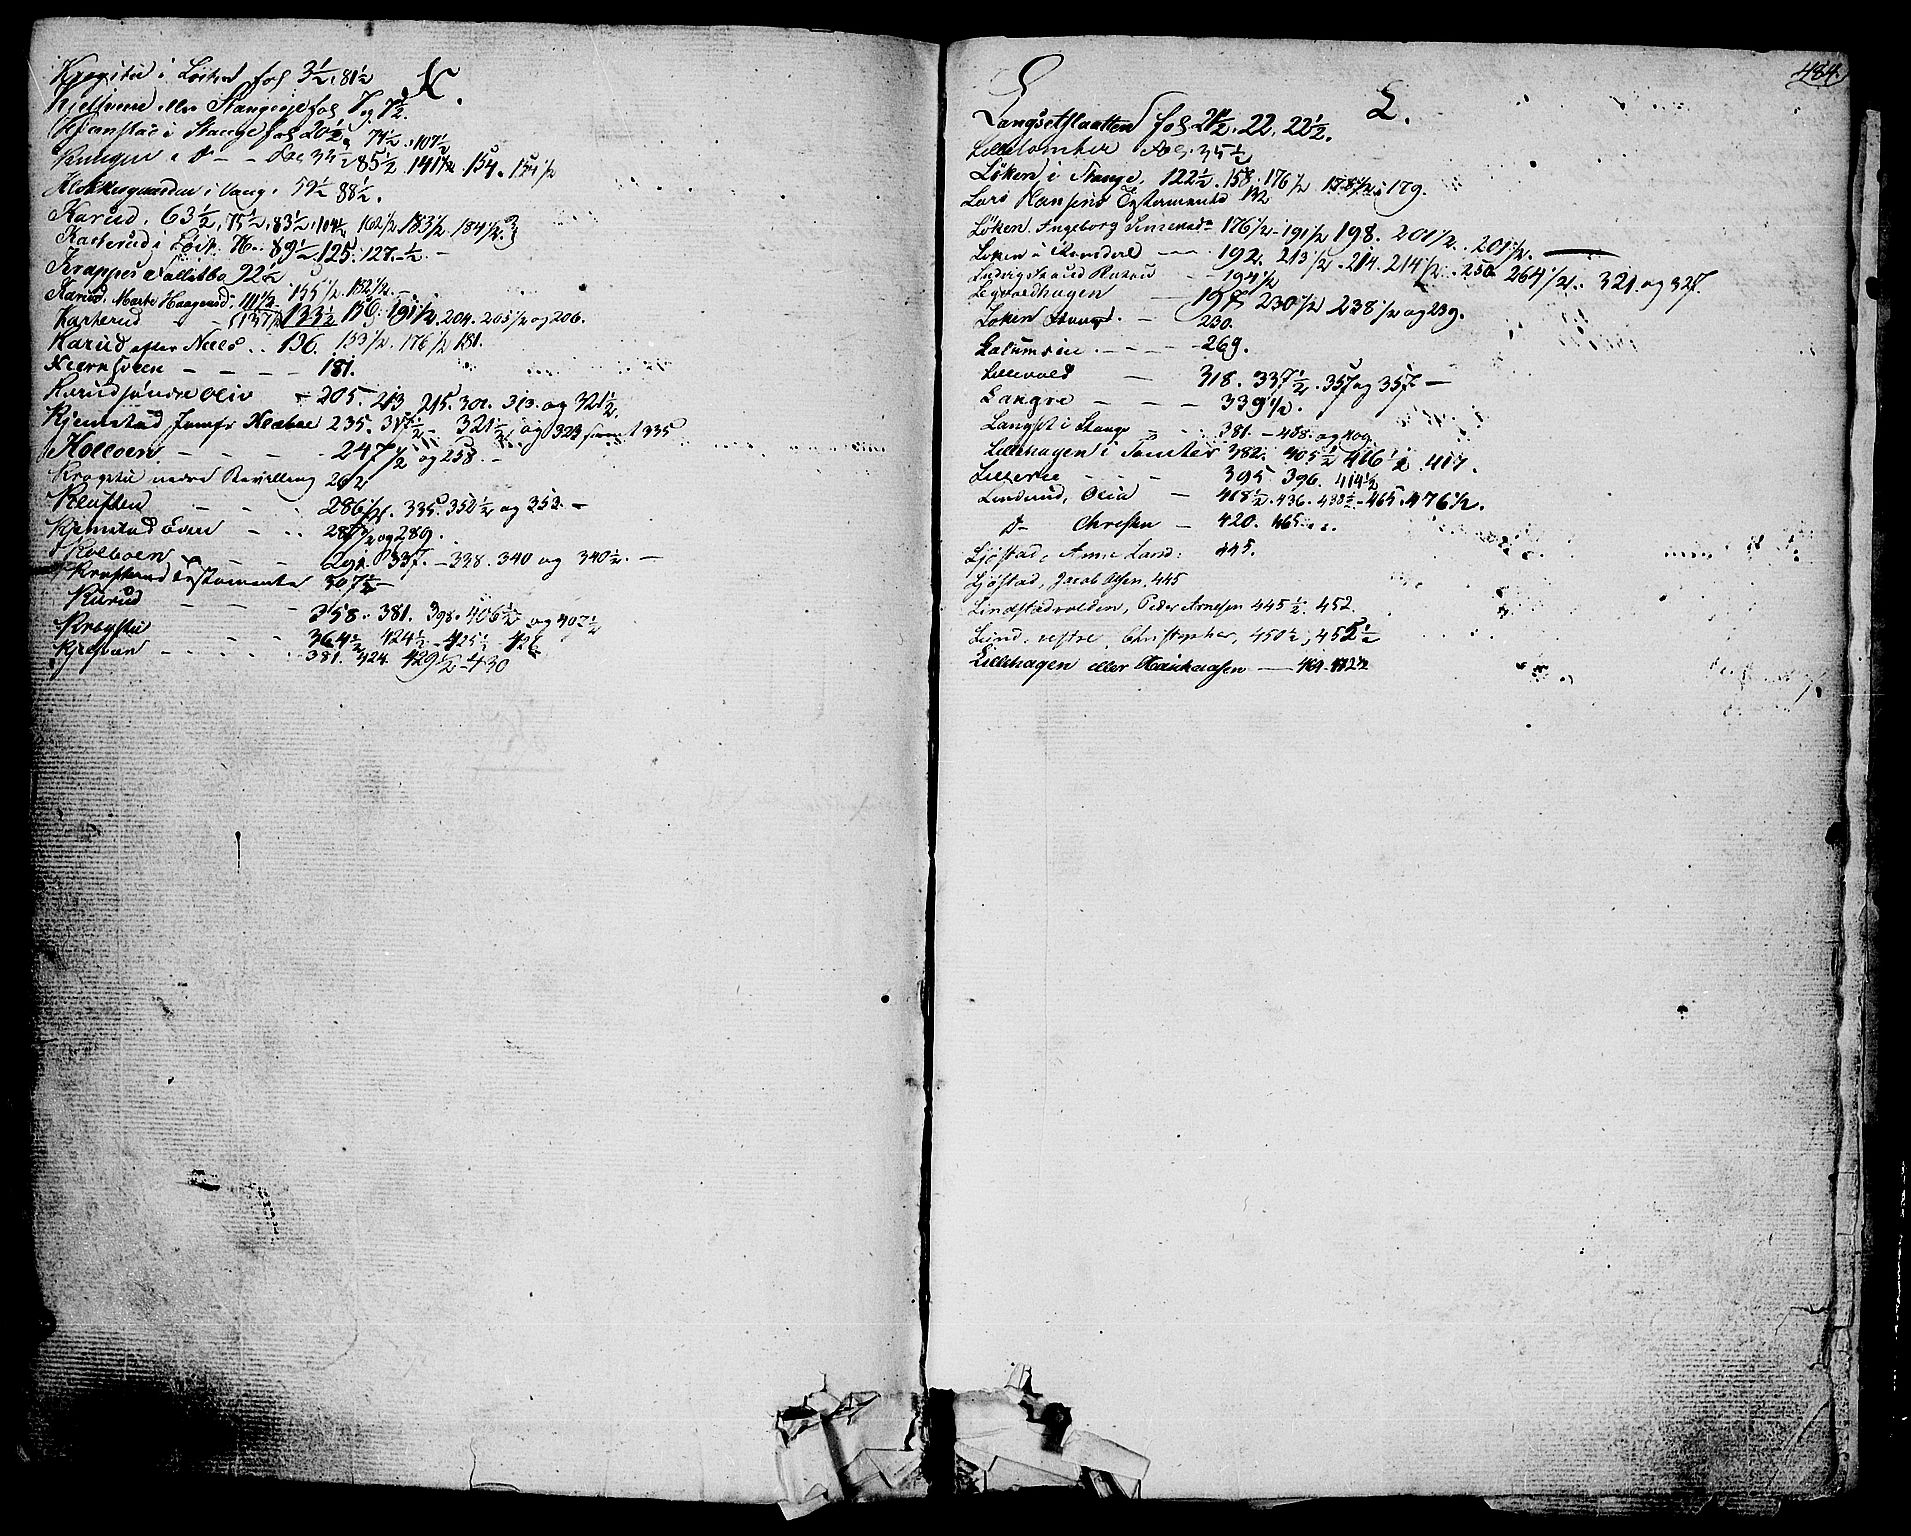 K.
Krogstie i Løiten fol 3½, 81½
Kjelsrene eller Stangeeje fol 7 og 7½.
Kiemstad i Stange fol 20½, 74½, 107½
34½ 85½ 141½. 154. 154½
Klokkergaarden i Vang. 59½ 88½.
Karud. 63½, 75½, 83½, 104½ 162½ 183½. 184½.
Kasterud i Løit. 76. 89½. 125. 127.½. -
Krappes Salletbo 92½
Karud. Marte Haagensd: 111½. 155½. 152½. -
Karterud - - 137½ 133½ 150. 191½. 204. 205½ og 206.
Karud efter Niels .. 136. 153½. 176½ 181.
- - - - 181.
Karudsøndre Oliv - 205. 213. 215. 301. 313. og 321½.
Kjemstad Jomfr Klæboe 235. 317½ - 321½ og 323 samt 335
Kolloen - - - - 247½ og 258. -
Krogstie nedre Bevilling 262
Kluften - - . 286½. 335. 350½ og 353. -
Kjemstad øvre - .. 287½ og 289.
Kolloen - - - 337. - 338. 340 og 340½. -
Krafterud Testamente 307½ -
Karud - - - - 358. 381. 398. 406½ og 407½
Krogstie - - - 364½ 424½ - 425½ - 426
- - - - 381. 424. 429½. 430
484.
L.
Langsetflaatten fol 21½. 22. 22½.
Lillelomker fol. 35½
Løken i Stange. 122½. 158. 176½ 178½. 179.
Lars Hansens Testamente 132
Løken. Ingeborg Simensdr 176½ - 191½ 198. 201½. 201½. -
Løken i Romsdal - 192. 213½. 214. 214½. 250. 264½. 321. og 327.
Ludvig - 194½
Legvoldhagen - 197. 230½ 238½ og 239.
Løken Stange. - 230.
- - - - 269.
Lillevold - 318. 337½. 357 og 357. -
Langre - - - 339½.
Langset i Stange - 381. - 408. og 409.
Lillehagen i Tomter 382. 405½ 416½. 417.
Lillerie - - - 395. 396. 414½
Linderud, Olia - 418½. 436. 438½ - 465. 476½.
d- Christen - 420. 465. . .
Ljøstad, Arne Land: 445.
Ljøstad, Jacob Olsen, 445
Lindstadvolden, Peder Arnesen 445½. 452.
Lund, vestre, Christopher, 450½, 455½
Lillehagen eller Haukaasen - 464. 472½